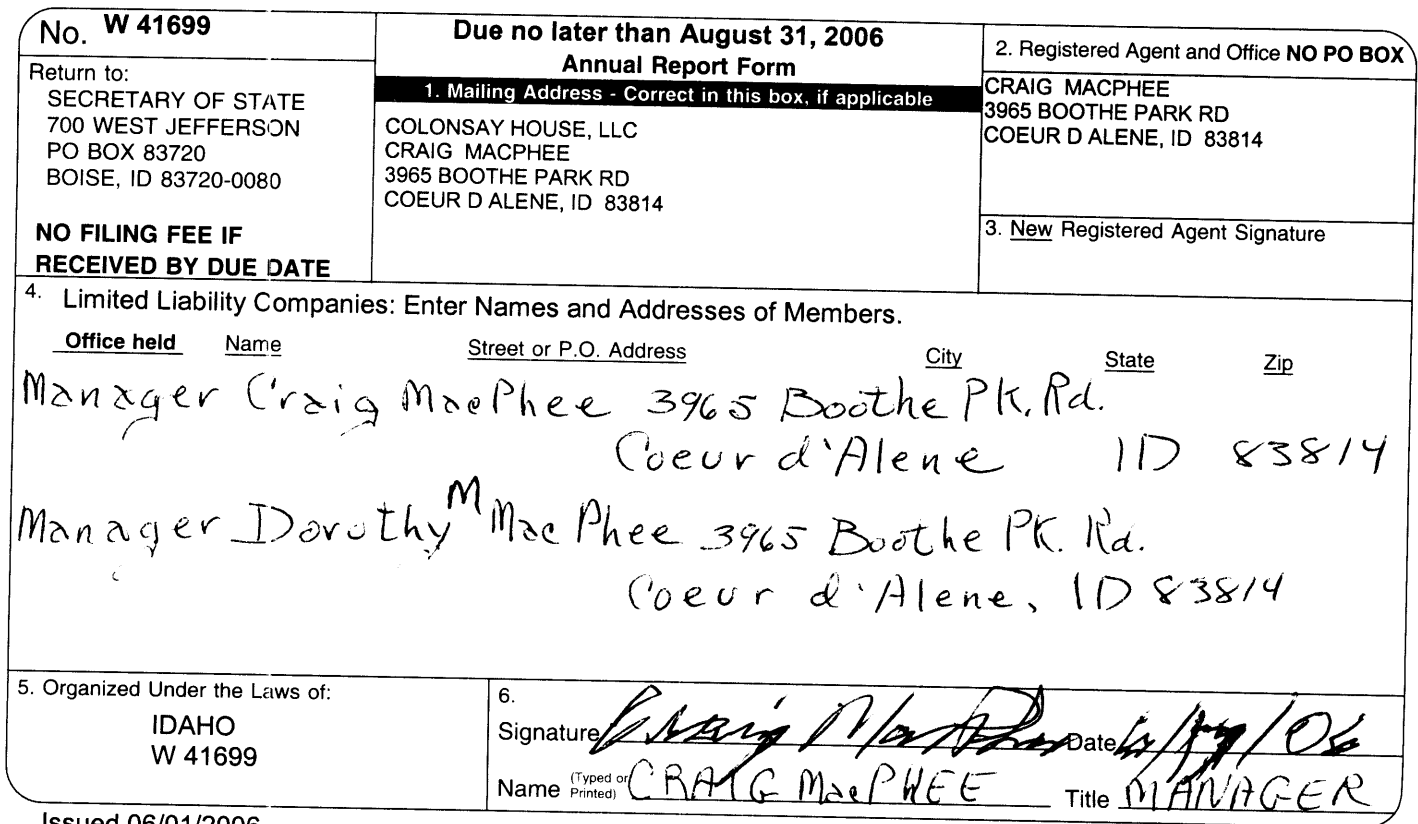 No. W 41699
Return to:
SECRETARY OF STATE
700 WEST JEFFERSON
PO BOX 83720
BOISE, ID 83720-0080
NO FILING FEE IF
RECEIVED BY DUE DATE
Due no later than August 31, 2006
Annual Report Form
1. Mailing Address - Correct in this box, if applicable
COLONSAY HOUSE, LLC
CRAIG MACPHEE
3965 BOOTHE PARK RD
COEUR D ALENE, ID 83814
2. Registered Agent and Office NO PO BOX
CRAIG MACPHEE
3965 BOOTHE PARK RD
COEUR D ALENE, ID 83814
3. New Registered Agent Signature
4. Limited Liability Companies: Enter Names and Addresses of Members.
Office held Name Street or P.O. Address City State Zip
Manager Craig MacPhee 3965 Boothe PK. Rd.
Coeur d'Alene ID 83814
Manager Dorothy M MacPhee 3965 Boothe PK. Rd.
Coeur d'Alene, ID 83814
5. Organized Under the Laws of:
IDAHO
W 41699
6.
Signature Craig MacPhee Date
Name (Typed or Printed) CRAIG MacPHEE Title MANAGER
Issued 06/01/2006